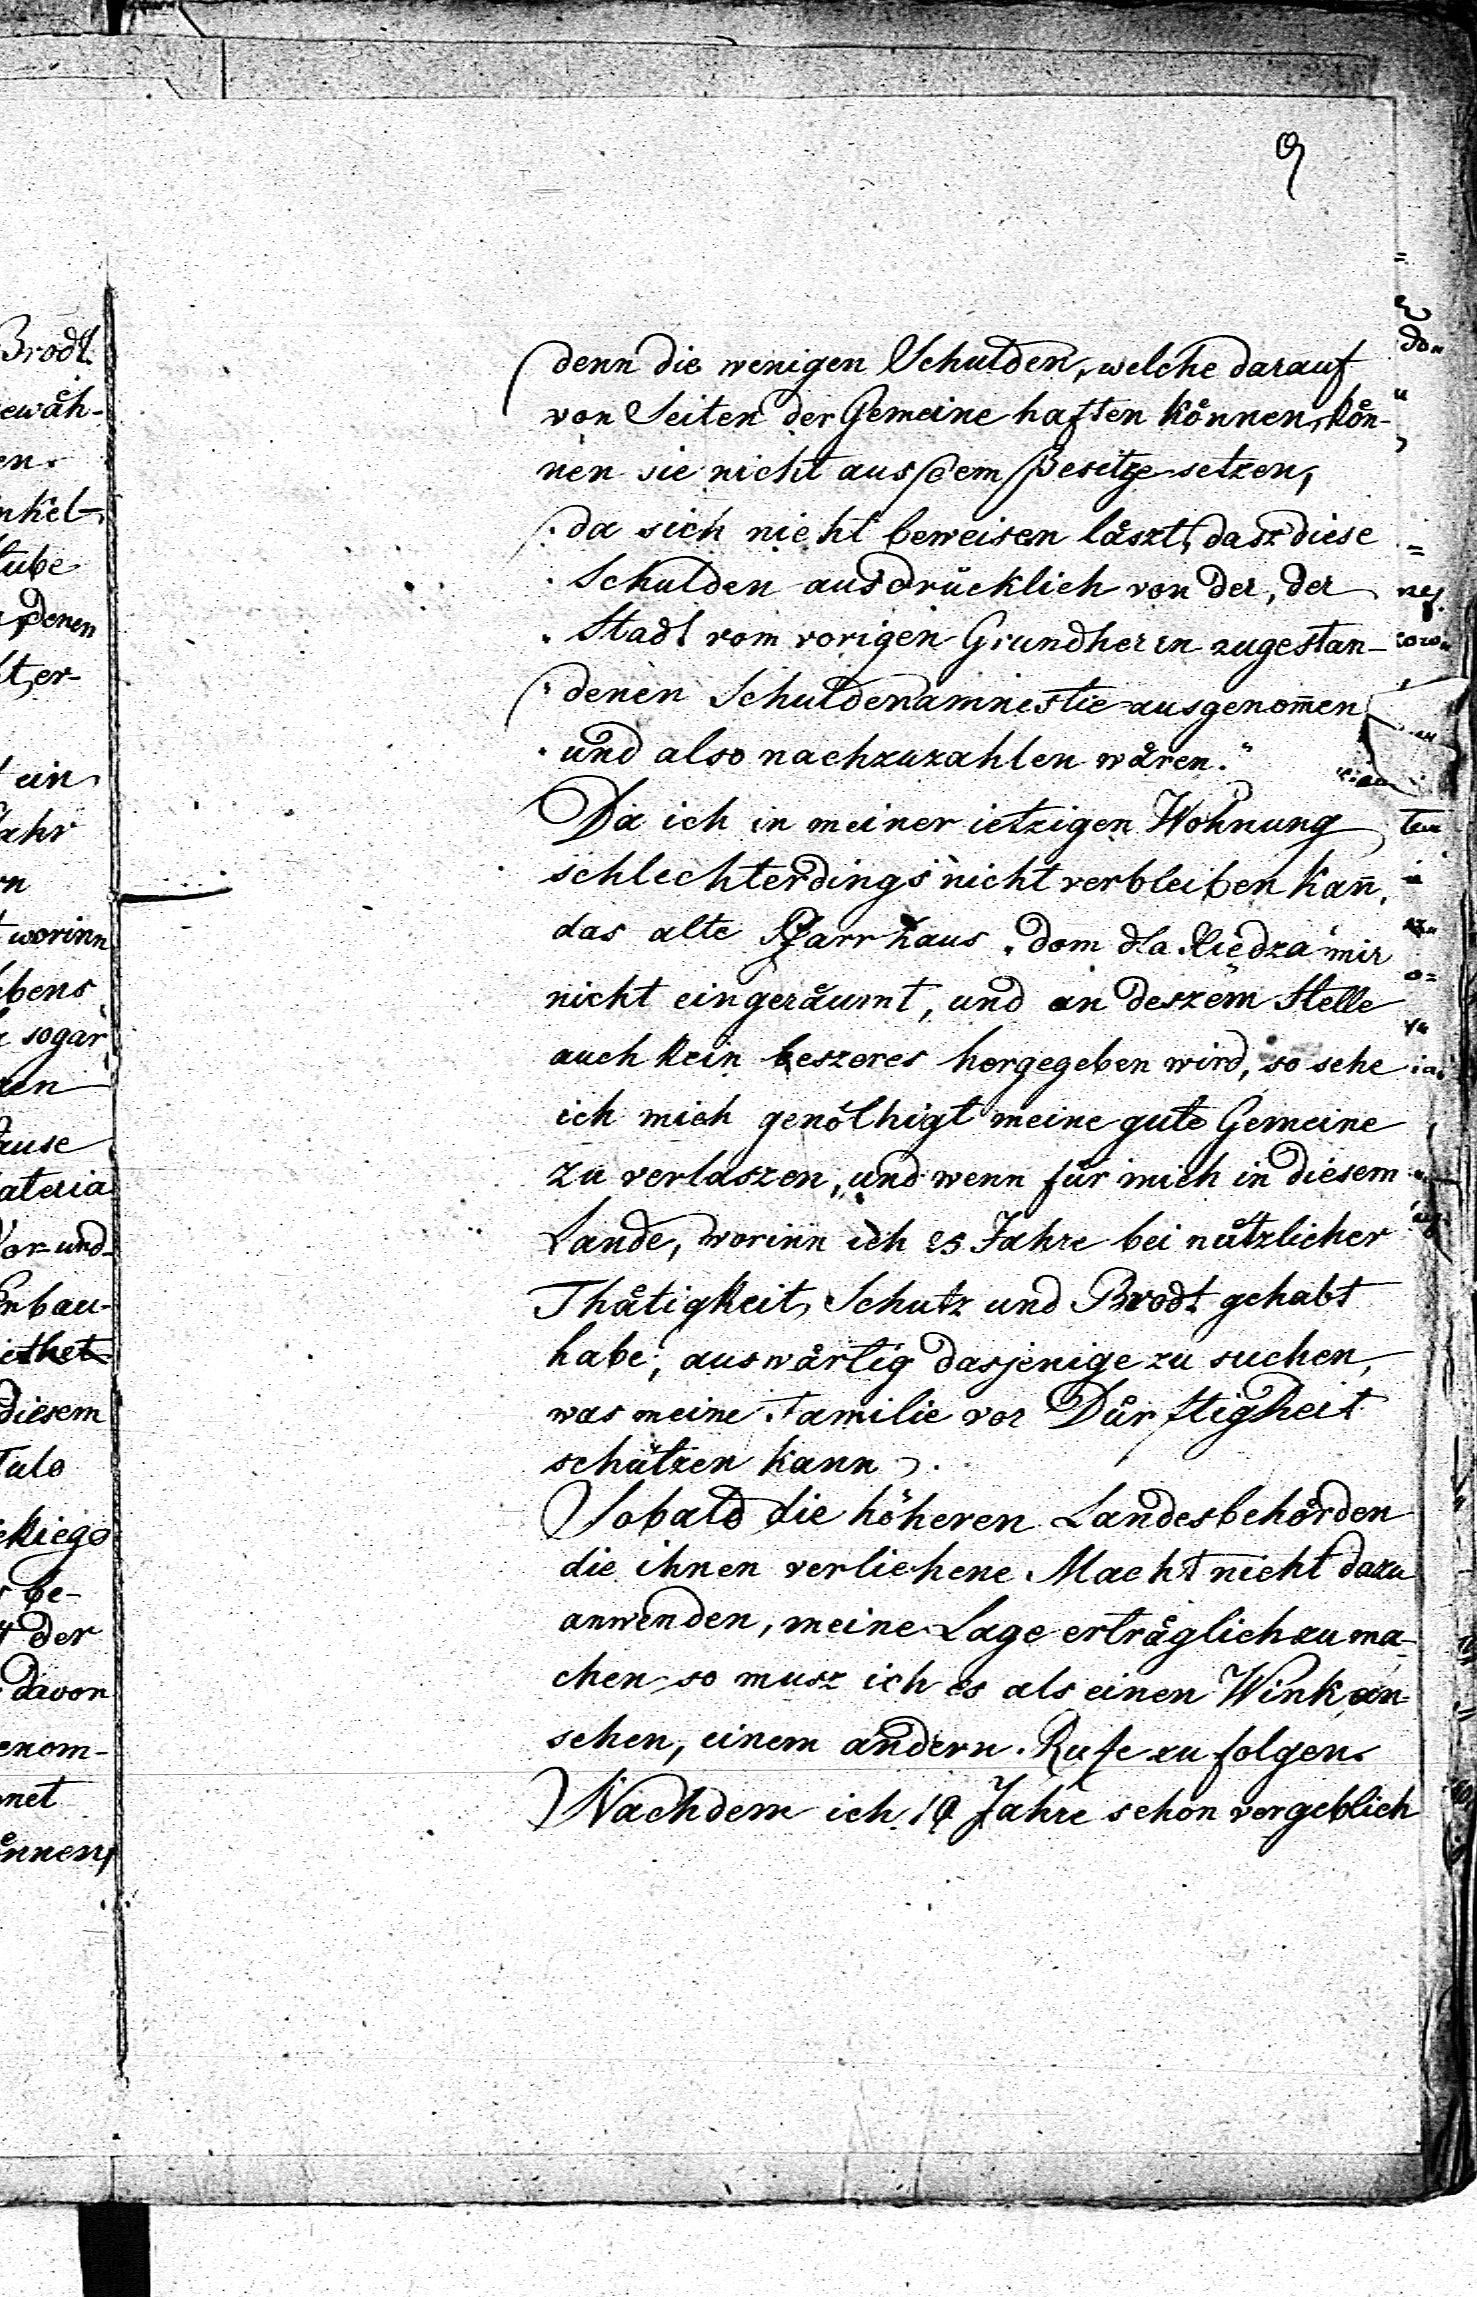 9
denn die wenigen Schulden, welche darauf
von Seiten der Gemeine haften können, kön-
nen sie nicht aus dem Besitze setzen,
da sich nicht beweisen läszt, dasz diese
Schulden ausdrücklich von der, der
Stadt vom vorigen Grundherrn zugestan-
denen Schuldenamnestie ausgenom̄en
und also nachzuzahlen wären."
Da ich in meiner ietzigen Wohnung
schlechterdings nicht verbleiben kan̄,
das alte Pfarrhaus „dom dla Xiędza" mir
nicht eingeräumt, und an deszem Stelle
auch kein beszeres hergegeben wird, so sehe
ich mich genöthigt meine gute Gemeine
zu verlaszen, und wenn für mich in diesem
Lande, worinn ich 25 Jahre bei nützlicher
Thätigkeit, Schutz und Brodt gehabt
habe, auswärtig dasjenige zu suchen,
was meine Familie vor Dürftigkeit
schützen kann.
Sobald die höheren Landesbehörden
die ihnen verliehene Macht nicht dazu
anwenden, meine Lage erträglich zu ma-
chen so musz ich es als einen Wink an-
sehen, einem andern Rufe zu folgen.
Nachdem ich 19 Jahre schon vergeblich
Brodt
ewäh-
en
nkel-
tube
denen
ter-
ein
ahr
worinn
ebens
sogar
ause
ateria
Vor- und
bau-
iethet
diesem
kiego
be-
der
davon
enom-
net
önnen,